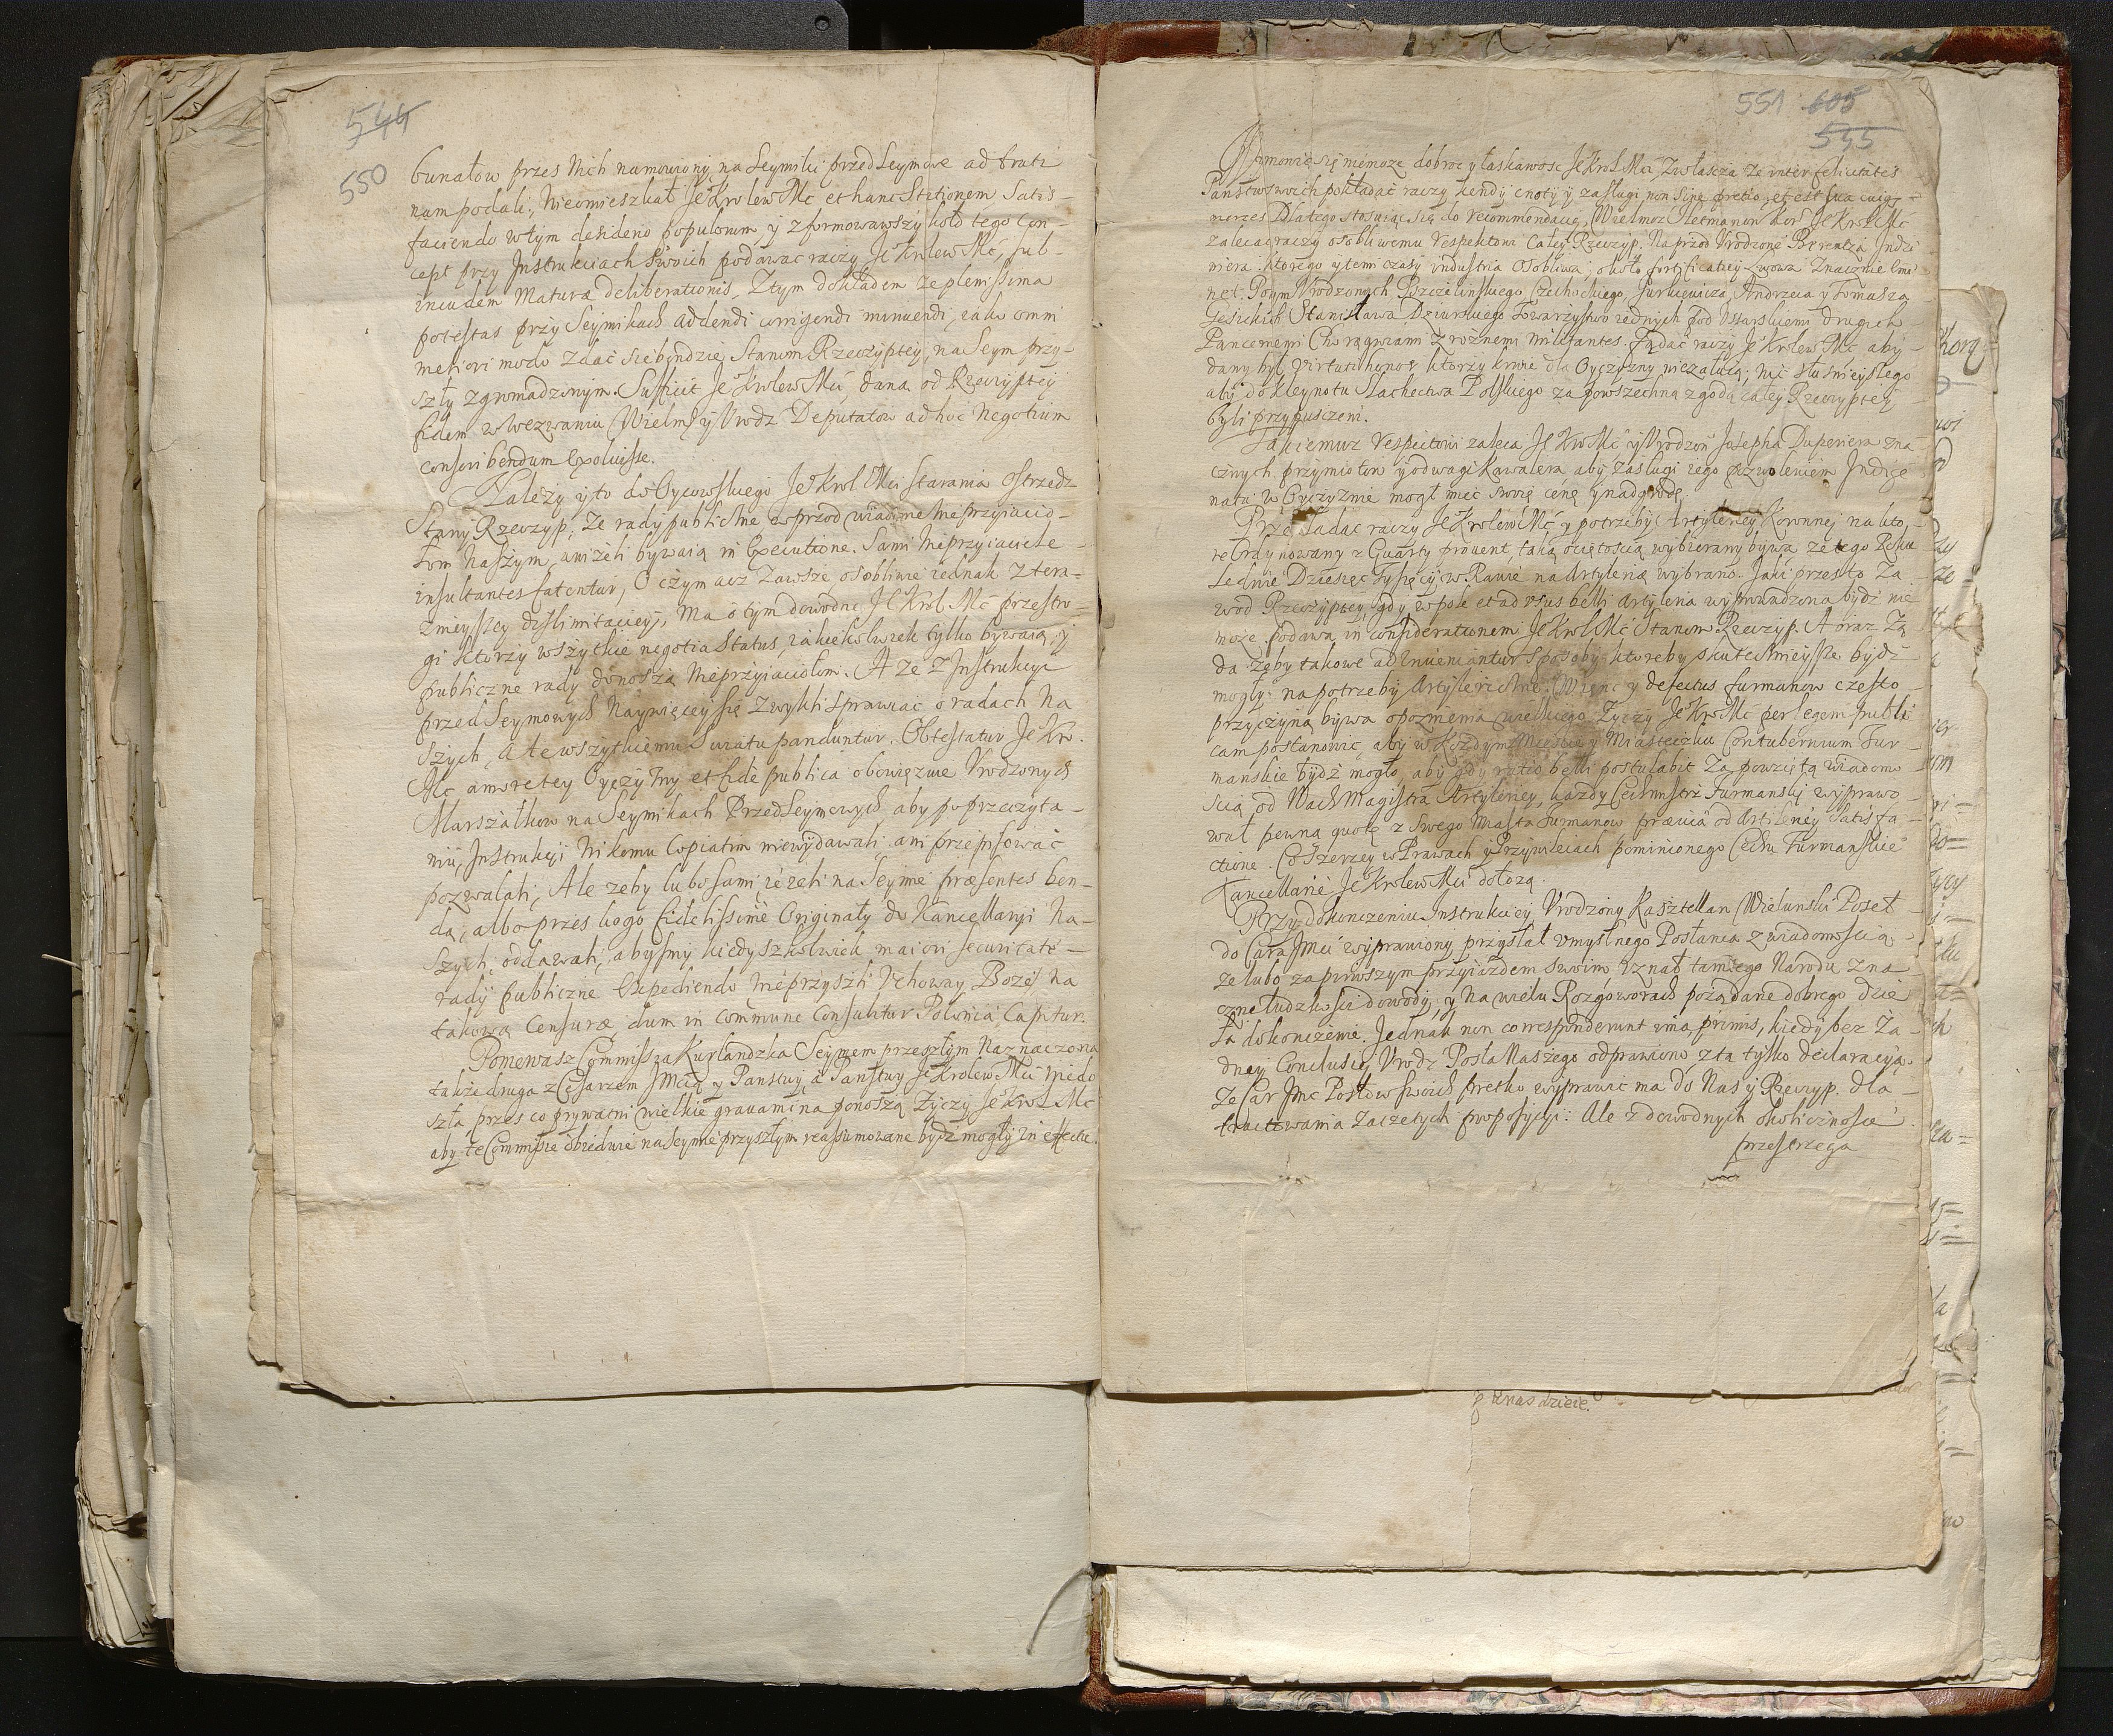 544
550
bunałow przes Nich namowiony, na Seymiki przed Seymowe ad trati
nam podali, Nieomieszkał Je Krolew Mć et hanc Stationem Satis-
faciendo w tym desiderio populorum y zformowawszy koło tego Con-
cept przy Instrukciach Swoich podawac raczy Je Krolew Mć, sub
incudem Maturæ deliberationis, Z tym dokładem ze plenissima
potestas przy Seymikach addendi corrigendi minuendi, iako omni
meliori modo zdać sie będzie, Stanom Rzeczyptey, na Seym przy-
szły zgromadzonym. Sufficit Je Krolew Mći, dana od Rzeczyptey
fidem w wezwaniu Wielm: y Vrodz Deputatow ad hoc Negotium
conscribendum Exoluisse.
Należy y to do Oycowskiego Je Krol Mći starania ostrzedz
Stany Rzeczyp: Ze rady publiczne wprzod wiadome Nieprzyiacio-
łom Naszym, aniżeli bywaią in Executione. Sami Nieprzyiaciele
insultantes fatentur, O czym acz Zawsze osobliwie iednak z tera-
znieyszey dislimitaciey, Ma o tym dowodne Je Krol Mć przestro-
gi ktorzy wszytkie negotia Status, iakiekolwiek tylko bywaią, y
publiczne rady donoszą Nieprzyiaciołom. A ze z Instrukcyi
przed Seymowych Naywięcey się Zwykli sprawiac o radach Na
szych, a te wszytkiemu Swiatu panduntur. Obtestatur Je Kro.
Mć amore tey Oyczyzny et fide publica obowięzuie Vrodzonych
Marszałkow na Seymikach PrzedSeymowych, aby po przeczyta-
niu, Instrukcyi Nikomu Copiatim niewydawali ani przepisować
pozwalali, Ale zeby lubo sami ieżeli na Seymie præsentes ben-
dą, albo przes kogo fidelissime Originały do Kancellaryi Na-
szych, oddawali, abysmy kiedyszkolwiek maiori securitate
rady publiczne Expediendo nieprzyszli Vchoway Boze, na
takową Censuræ dum in commune Consulitur Polonia Capitur.
Poniewasz Commissia Kurlandzka Seymem przeszłym Naznaczona
także druga z Cesarzem Jmcią y Panstwy a Panstwy Je Krolew Mći niedo
szła, przes co prywatni wielkie gravamina ponoszą Zyczy Je Krol Mć
aby te Commissie obiedwie na Seymie przyszłym reassumowane bydz mogły in effectu.
551 605
545
Je Krol Mći, Zwłascza Ze inter felicitates
Panstw swoich pokładać raczy, kiendy cnoty y zasługi non sine pretio, et est sua cuiq
merces Dlatego stosuiąc się do recommendacią Wielmoz Hetmanow Kor Je Krol Mć
zalecac raczy osobliwemu respektowi całey Rzeczyp. Naprzod Vrodzone Berenza Indzi
niera ktorego y temi czasy industria osobliwa, około fortificatiey Lwowa Znacznie emi
net. Poym Vrodzonych Czechockiego, Jurkiewicza, Andrzeia y Tomasza
Gesickich Stanisława Dziurskiego Towarzystwo iednych pod Vssarskiemi drugich
Pancernemi Chorągwiami z roznemi militantes. Ządać raczy Je Krolew Mć aby
dany był virtuti honos ktorzy krwie dla Oyczyzny niezałuią, nic słusznieyszego
aby do kleynotu Slachectwa Polskiego za powszechną zgodą całey Rzeczyptey
byli przypuszczeni.
Takiemuz respectowi zaleca Je Kro Mć y Vrodzon Josepha Duperiera zna
cznych przymiotow y odwagi kawalera aby zasługi iego pozwoleniem Indige
natu w Oyczyznie mogł miec swoię cenę y nadgrodę.
Przekładac raczy Je Krolew Mć y potrzeby Artyleriey Koronney na kto
re Ordynowany z Quarty prouent, taką ociętoscią wybierany bywa, ze tego Roku
Ledwie Dziesięć Tysięcy w Rawie na Artylerią wybrano. Jaki przesto Za
wod Rzeczyptey, gdy w pole et ad usus belli Artyleria wyprowadzona bydź nie
moze, podawa in considerationem Je Krol Mć Stanom Rzeczyp. A oraz Zą
da zeby takowe adinueniantur sposoby ktoreby skutecznieysze bydź
mogły na potrzeby Artylericzne. Więnc y defectus furmanow często
przyczyną bywa opoznienia wielkiego Zyczy Je Kro Mć per legem publi
cam postanowic, aby w kozdym Miescie y Miasteczku Contubernium Fur
manskie bydź mogło, aby gdy ratio belli postulabit Za powziętą wiadomo
scią od WachMagistra Artyleriey, kazdy Cechmistrz Furmanski wyprawo
wał pewną quotę z swego Miasta Furmanow præuia od Artileriey Satisfa
ctione. Co szerzey w Prawach y Przywileiach pominionego Cechu Furmanskie
Kancellarie Je Krolew Mći dołozą.
Przy dokonczeniu Instrukciey Vrodzony Kasztellan Wielunski Poseł
do Cara Jmći wyprawiony, przysłał vmyslnego Posłanca z wiadomoscią
ze lubo za pierwszym przyiazdem swoim vznał tamtego Narodu zna
czne ludzkosci dowody, y na wielu Rozgoworach pożądane dobrego dzie
ła dokonczenie. Jednak non corresponderunt ima primis, kiedy bez Ża
dney Conclusiey Vrodz Posła Naszego odprawiono z tą tylko declaracyą
Ze Car Jmc Posłow swoich prętko wyprawic ma do Nas y Rzeczyp. dla
tractowania zaczętych propositiyi: Ale z dowodnych okolicznosci
przestrzega